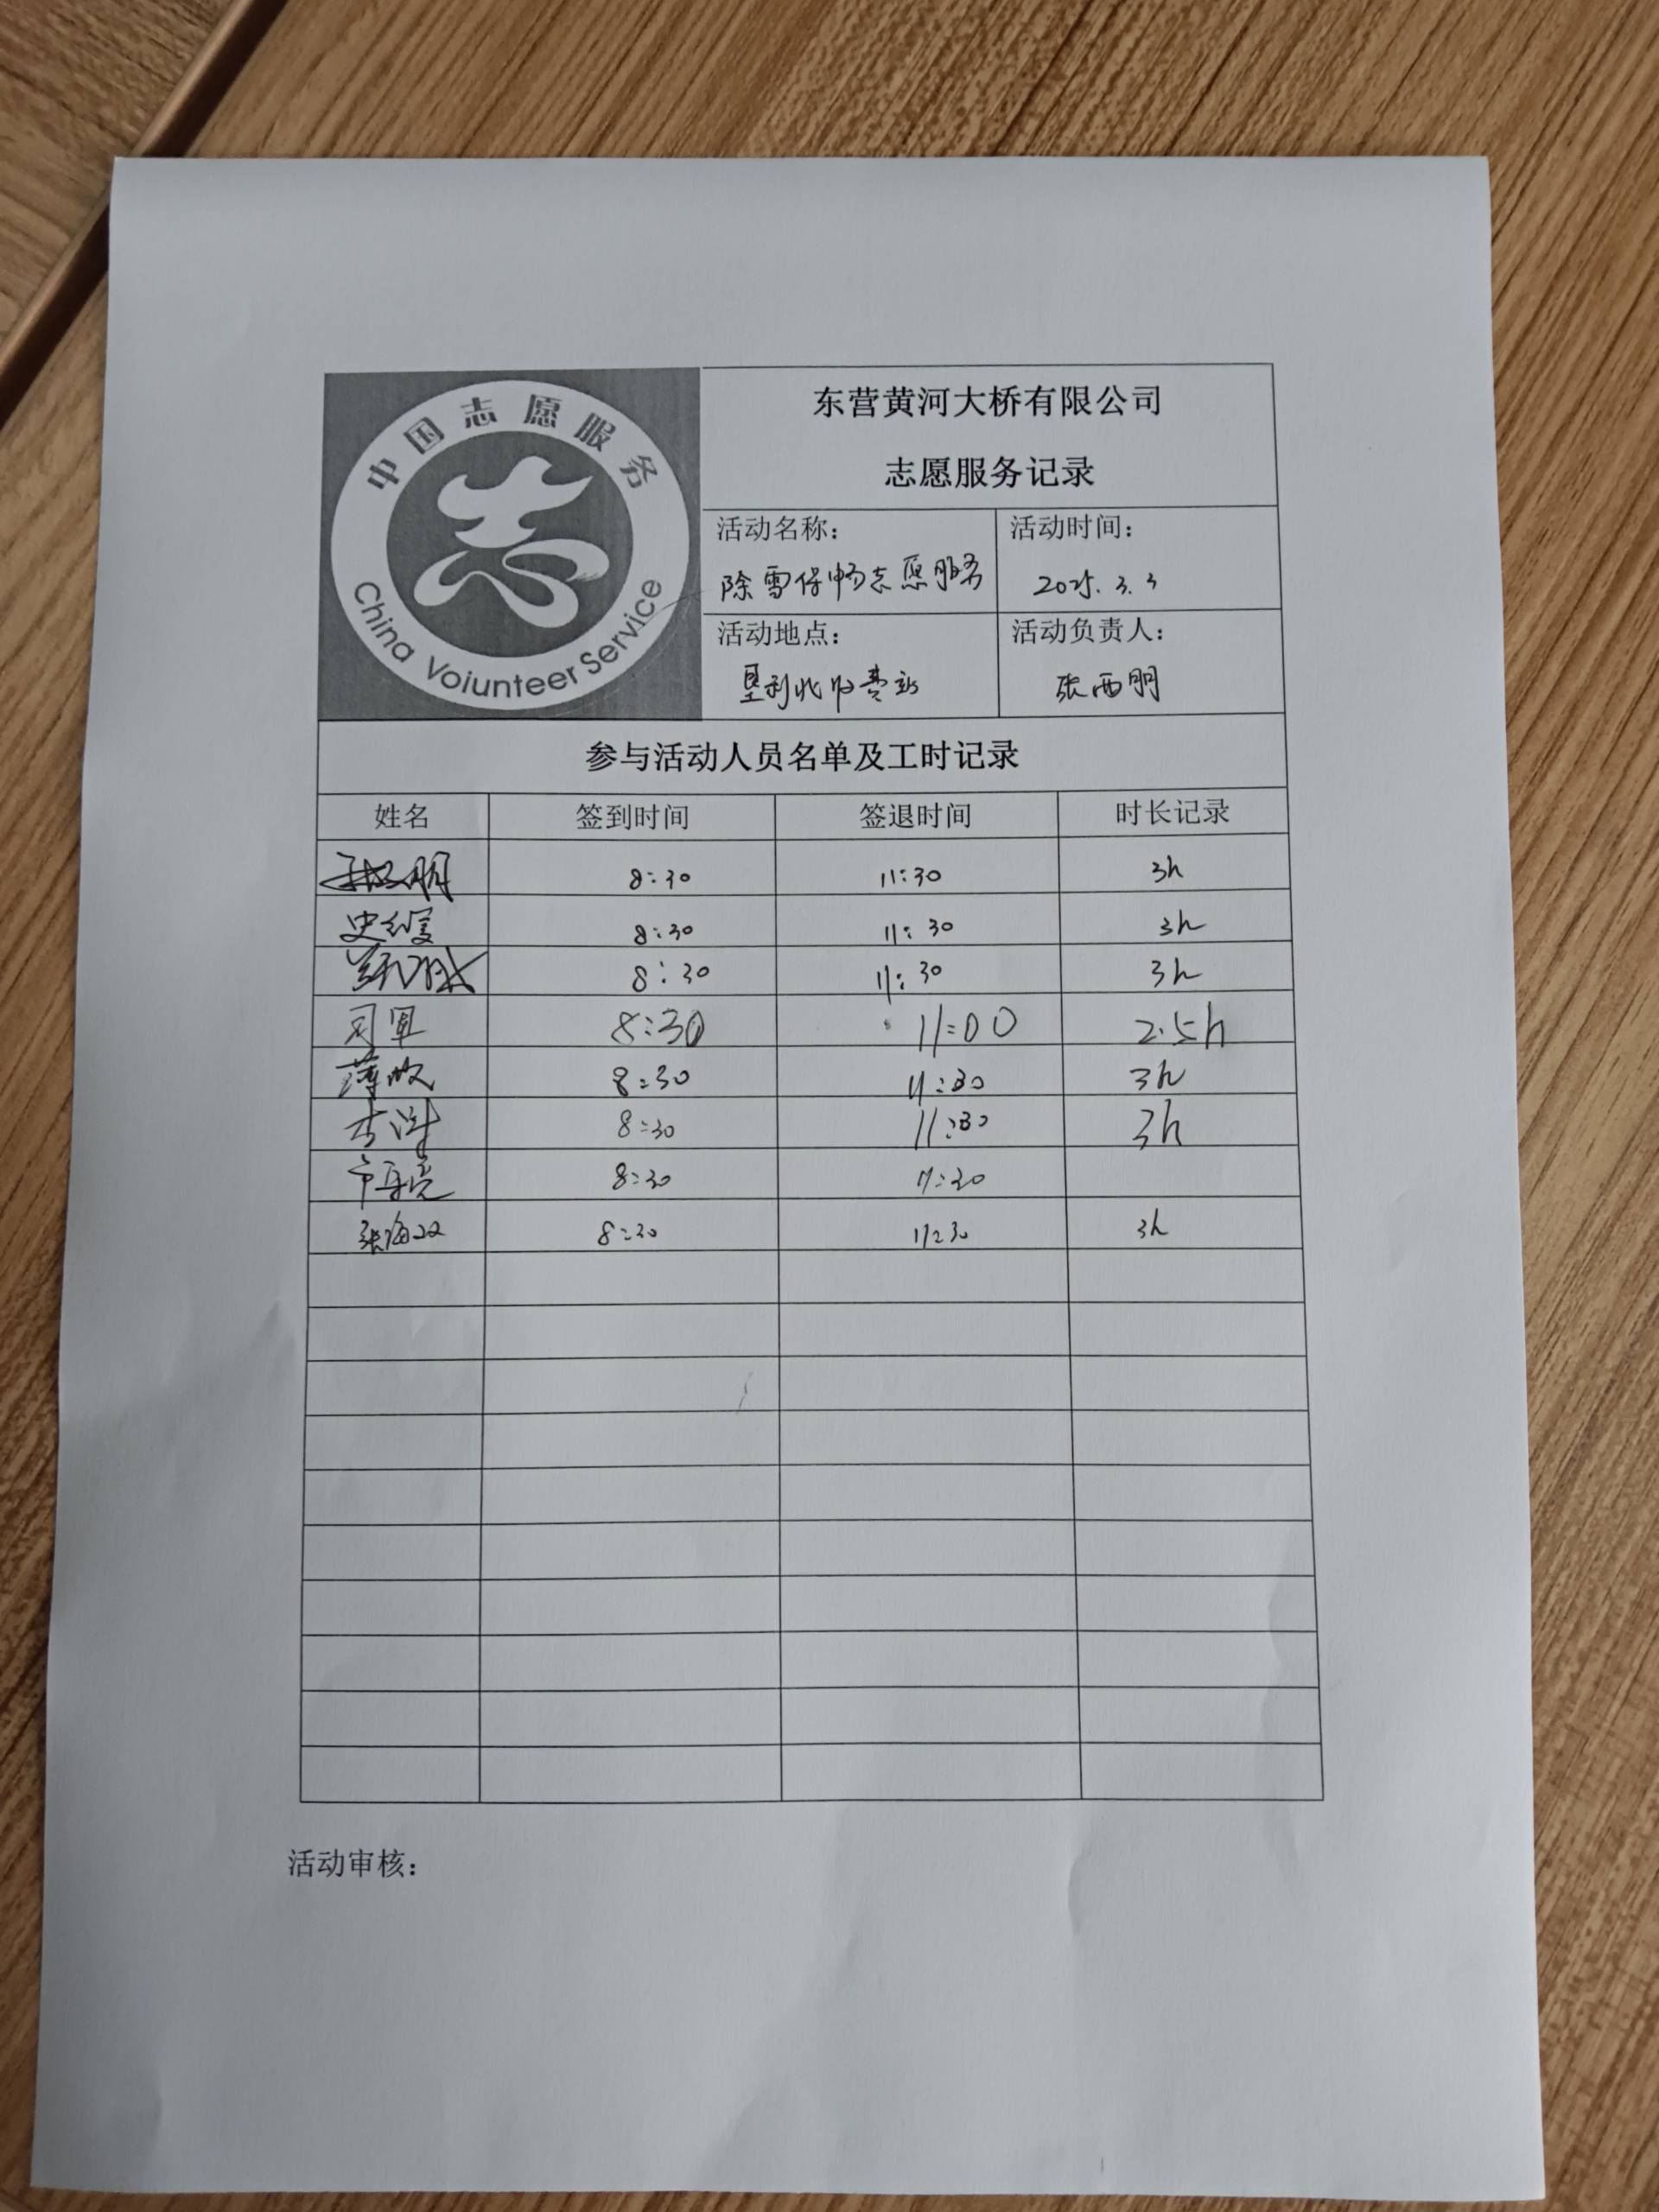 中国志愿服务
志
China Voiunteer Service
东营黄河大桥有限公司
志愿服务记录
活动名称： 活动时间：
除雪保畅志愿服务 2025.3.3
活动地点： 活动负责人：
垦利北收费站 张西朋
参与活动人员名单及工时记录
姓名 签到时间 签退时间 时长记录
8:30 11:30 3h
8:30 11:30 3h
8:30 11:30 3h
司军 8:30 11:00 2.5h
8:30 11:30 3h
8:30 11:30 3h
8:30 11:30
张海双 8:30 11:30 3h
活动审核：